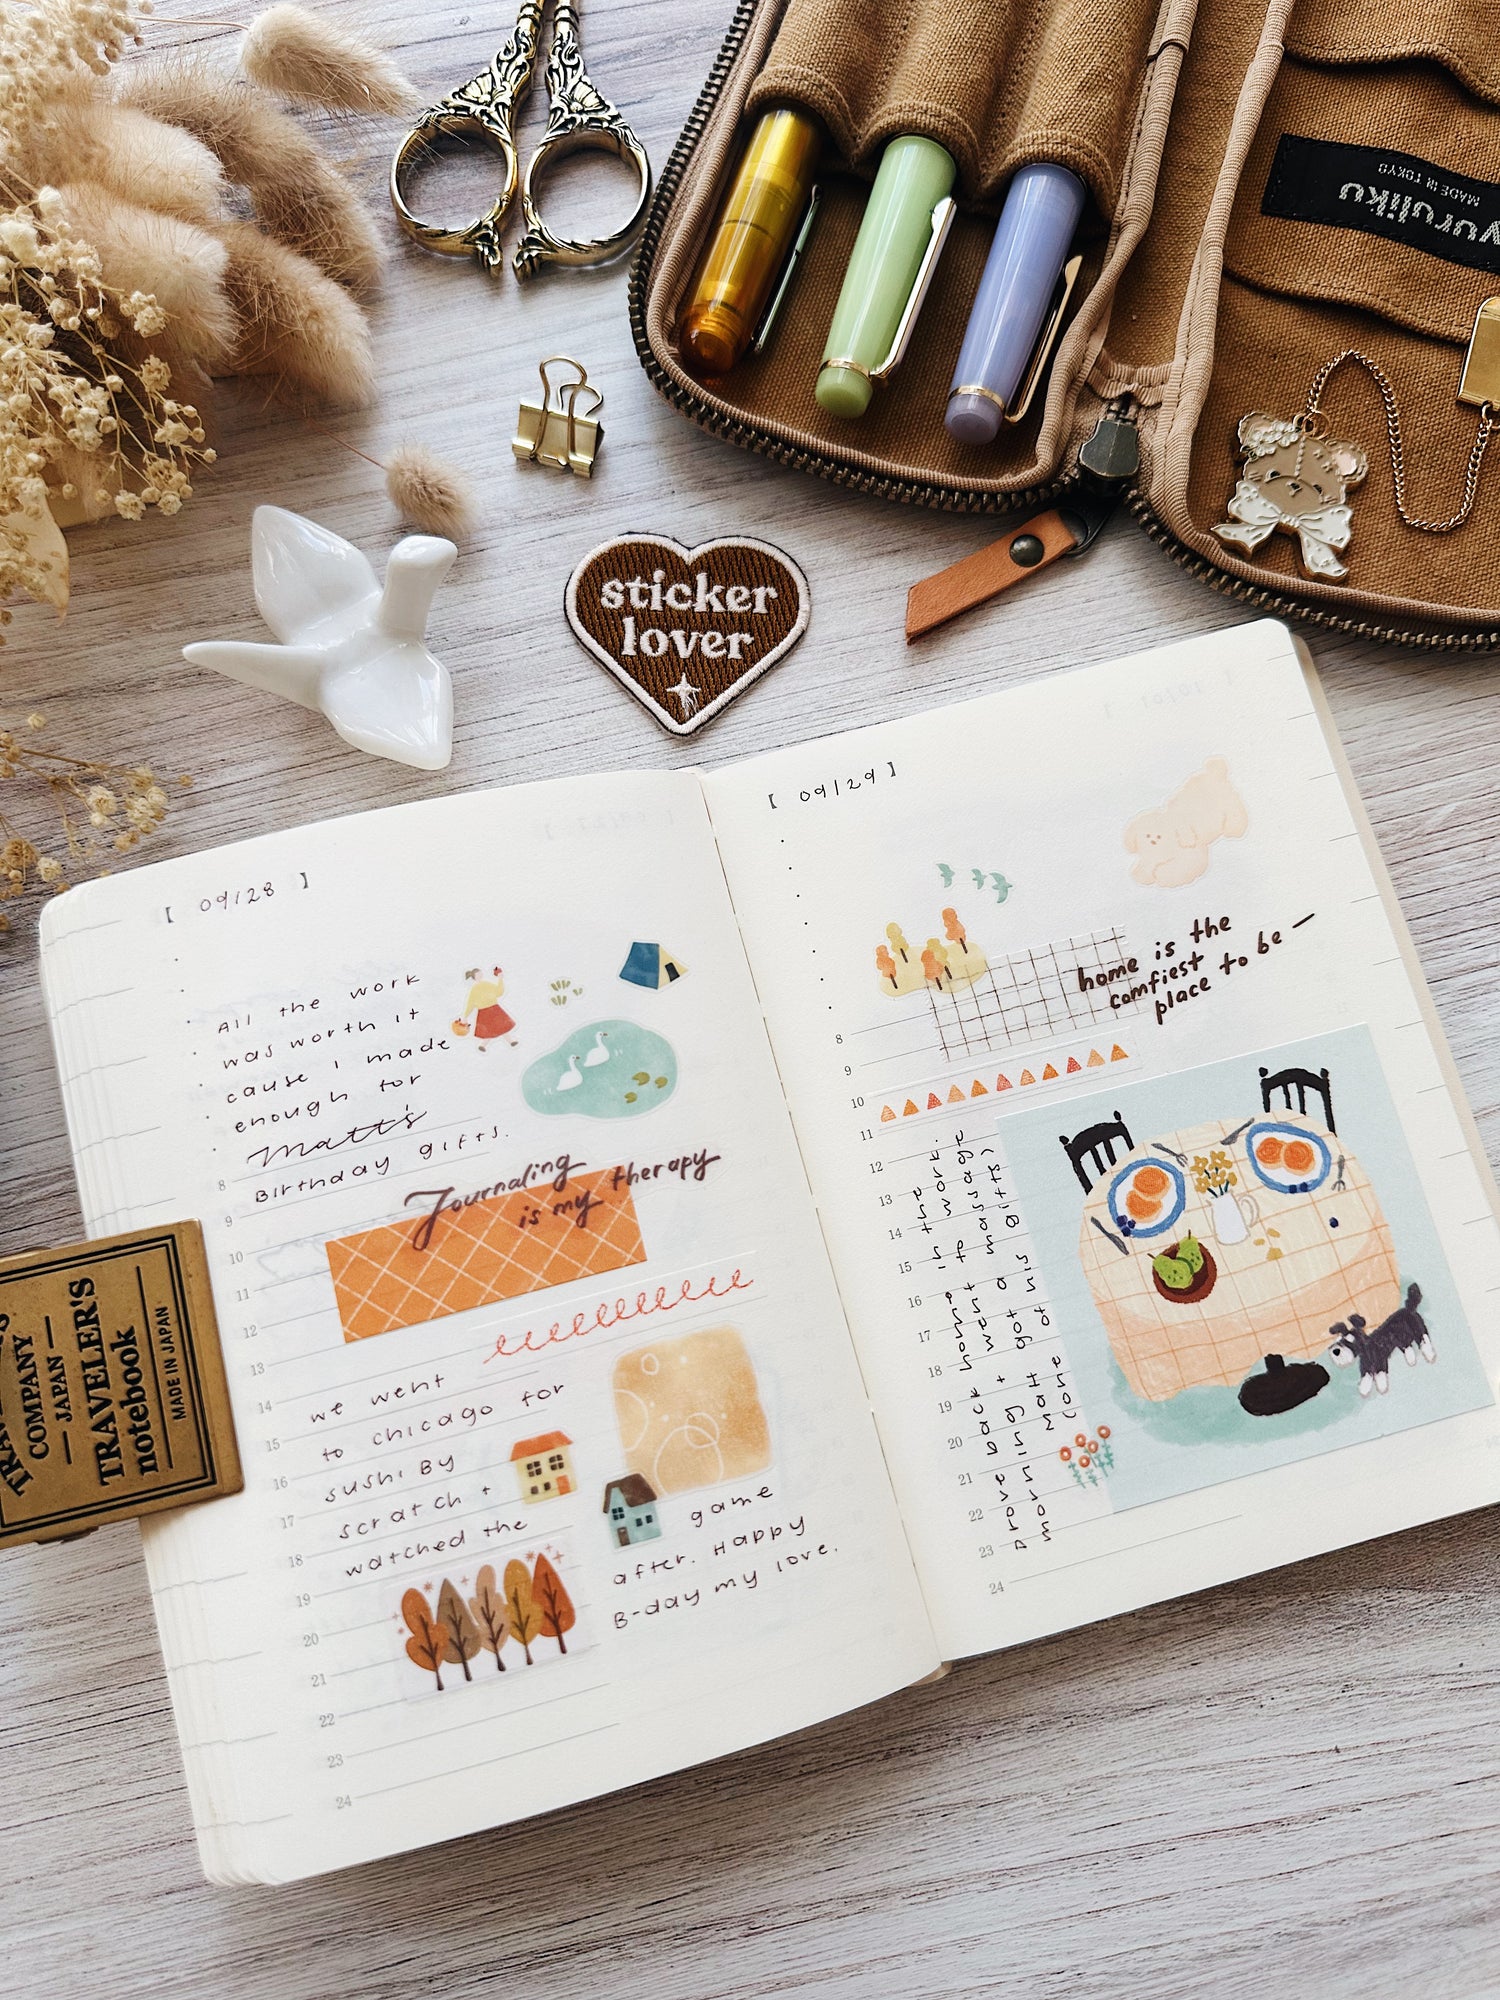 yuruliku
MADE IN TOKYO
sticker
lover
【 09/28 】
All the work
was worth it
cause I made
enough for
Matt's
Birthday gifts.
Journaling
is my therapy
we went
to chicago for
sushi By
scratch +
watched the
game
after. Happy
B-day my love.
8
9
10
11
12
13
14
15
16
17
18
19
20
21
22
23
24
COMPANY
JAPAN
TRAVELER'S
notebook
MADE IN JAPAN
【 09/29 】
home is the
comfiest
place to be —
8
9
10
11
12
13
14
15
16
17
18
19
20
21
22
23
24
Drove back home in the
morning + went to massage
Matt got a
cone of his gifts)
work.